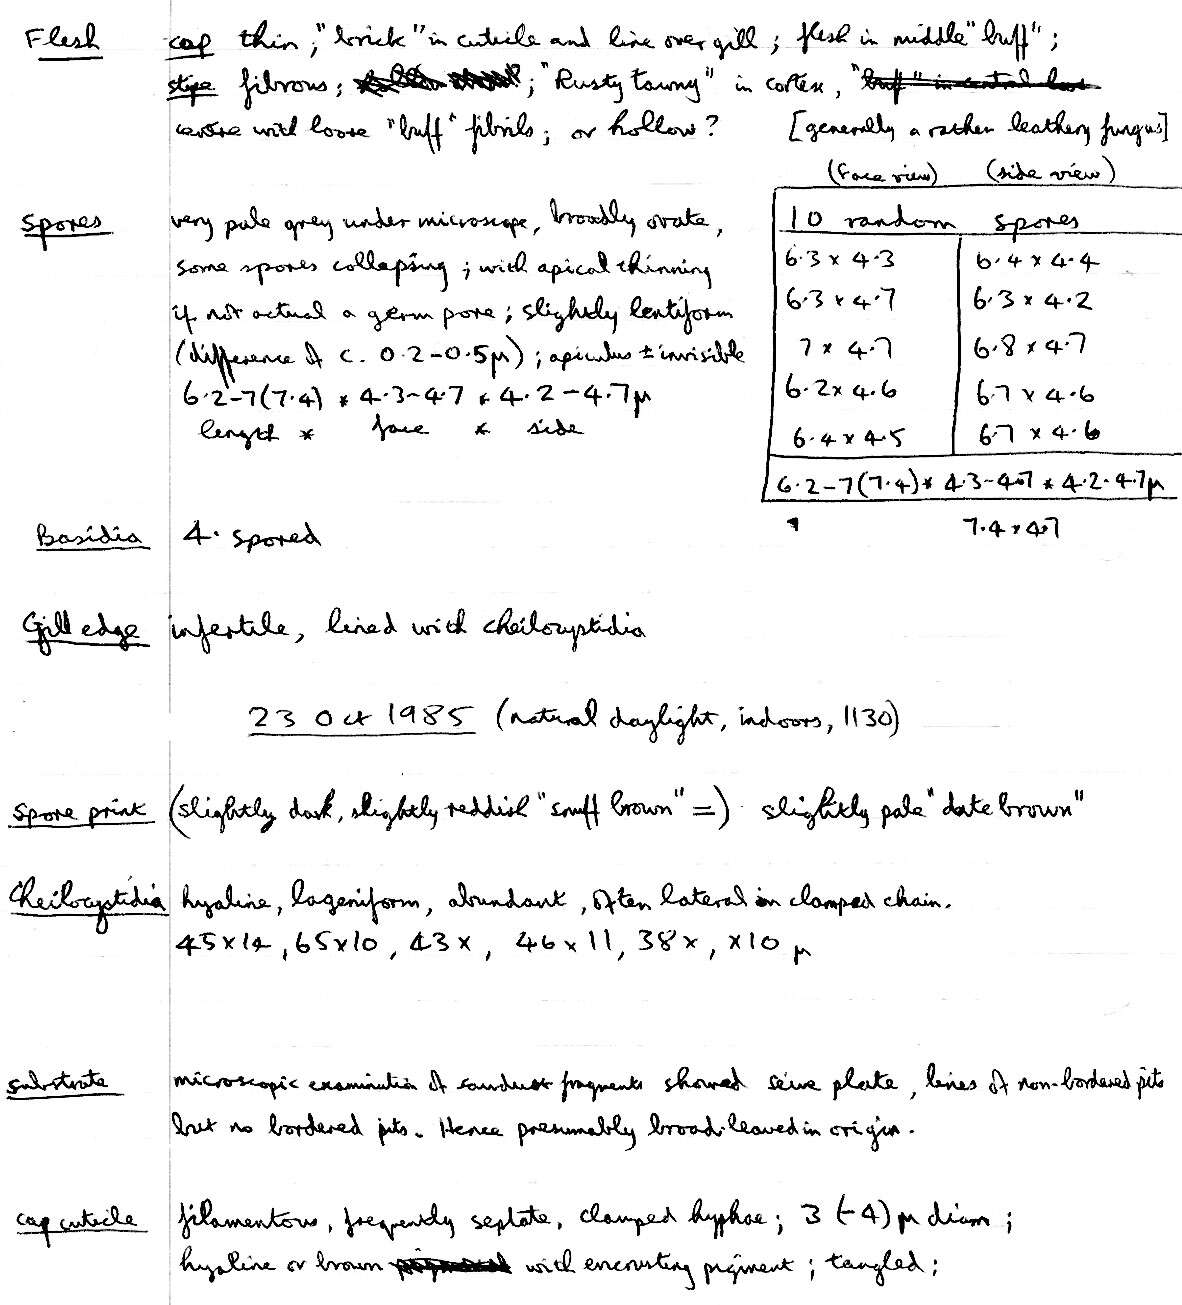 Flesh cap thin; "brick" in cuticle and line over gill; flesh in middle "buff";
stipe fibrous; "Rusty tawny" in cortex, "buff" in central
centre with loose "buff" fibrils; or hollow? [generally a rather leathery fungus]
(face view) (side view)
Spores very pale grey under microscope, broadly ovate,
some spores collapsing; with apical thinning
if not actual a germ pore; slightly lentiform
(difference of c. 0.2-0.5μ); apiculus ± invisible
6.2-7(7.4) * 4.3-4.7 * 4.2-4.7μ
length * face * side
10 random spores
6.3 x 4.3 6.4 x 4.4
6.3 x 4.7 6.3 x 4.2
7 x 4.7 6.8 x 4.7
6.2 x 4.6 6.7 x 4.6
6.4 x 4.5 6.7 x 4.6
6.2-7(7.4) * 4.3-4.7 * 4.2-4.7μ
7.4 x 4.7
Basidia 4-spored
Gill edge infertile, lined with cheilocystidia
23 Oct 1985 (natural daylight, indoors, 1130)
Spore print (slightly dark, slightly reddish "snuff brown" =) slightly pale "date brown"
Cheilocystidia hyaline, lageniform, abundant, often lateral in clamped chain.
45x14, 65x10, 43x, 46x11, 38x, x10 μ
substrate microscopic examination of sawdust fragments showed seive plate, lines of non-bordered pits
but no bordered pits. Hence presumably broad-leaved in origin.
cap cuticle filamentous, frequently septate, clamped hyphae; 3(-4)μ diam;
hyaline or brown with encrusting pigment; tangled;